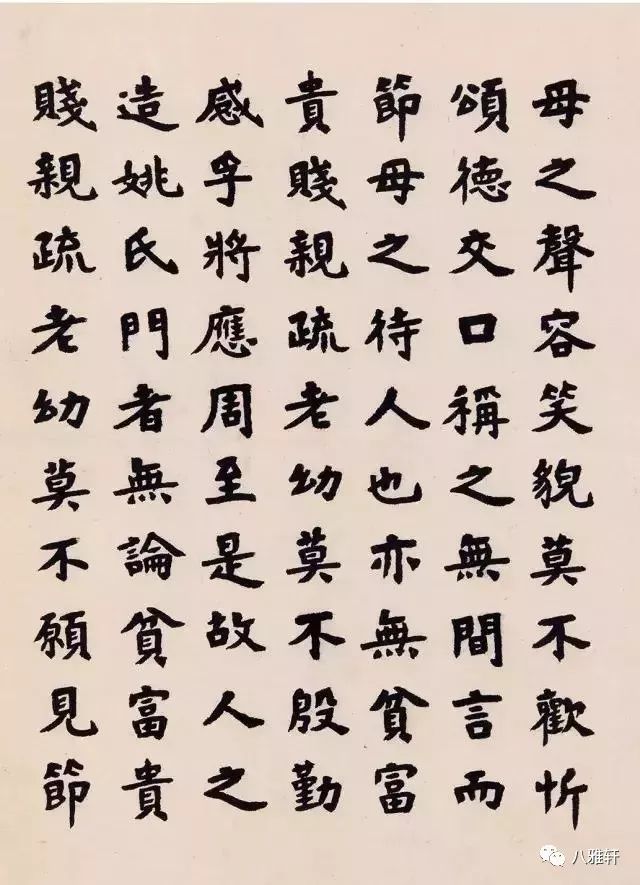 母之聲容笑貌莫不歡忻
頌德交口稱之無間言而
節母之待人也亦無貧富
貴賤親疏老幼莫不殷勤
感孚將應周至是故人之
造姚氏門者無論貧富貴
賤親疏老幼莫不願見節
八雅轩